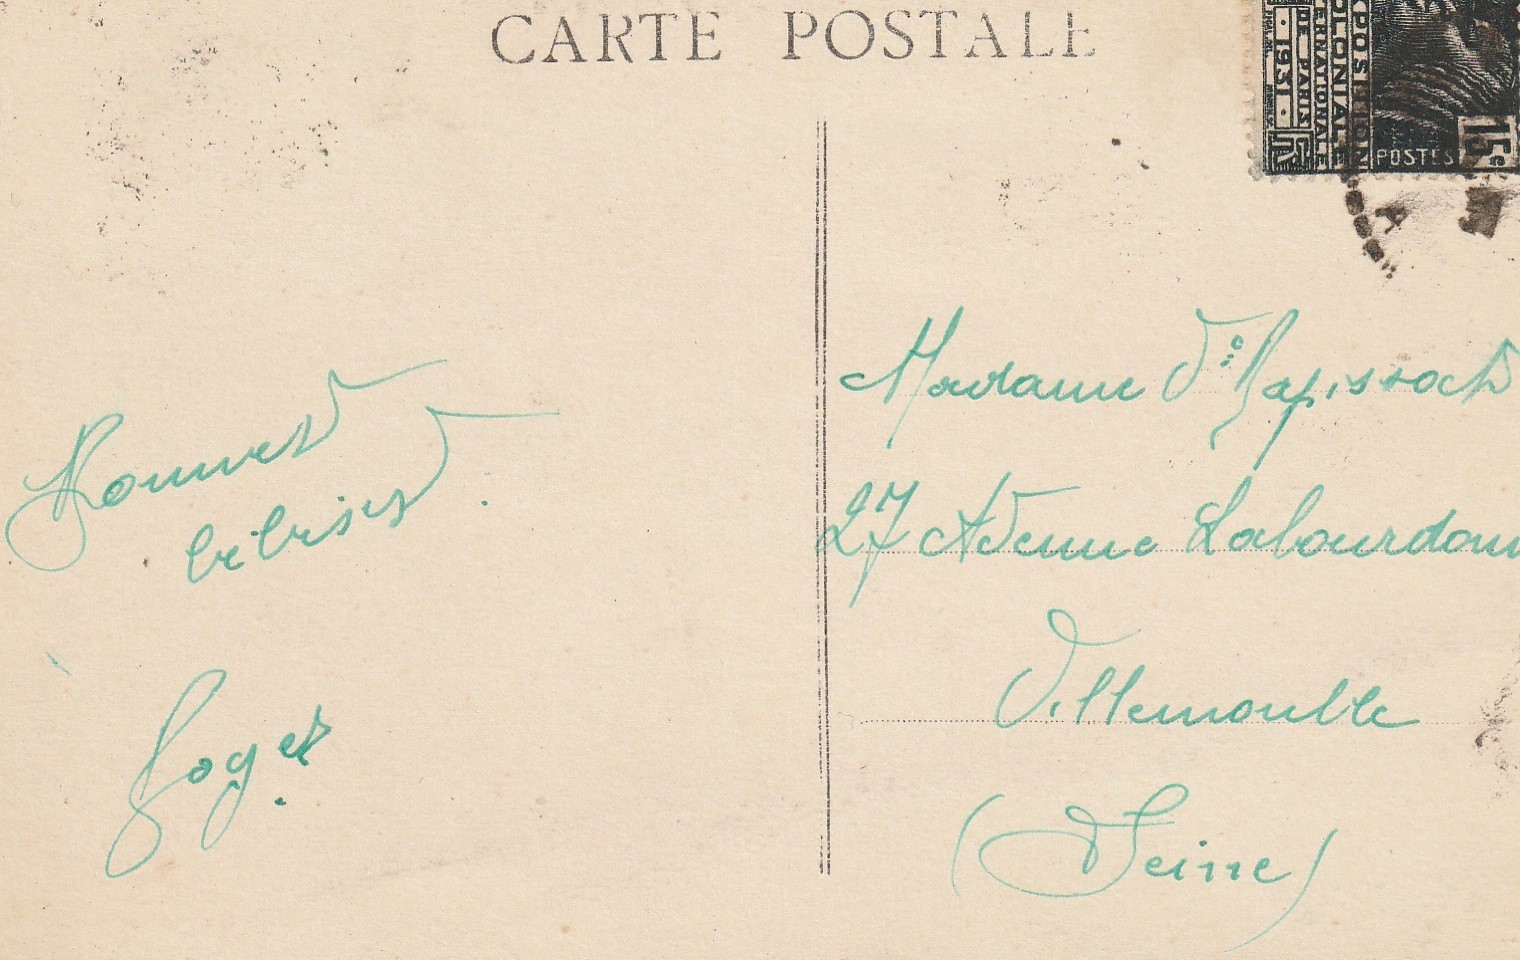 CARTE POSTALE
EXPOSITION
COLONIALE
INTERNATIONALE
DE PARIS
1931
RF
POSTES
15c
A
Bonnes
bibises.
Madame
27 Avenue Labourdon
Villemomble
(Seine)